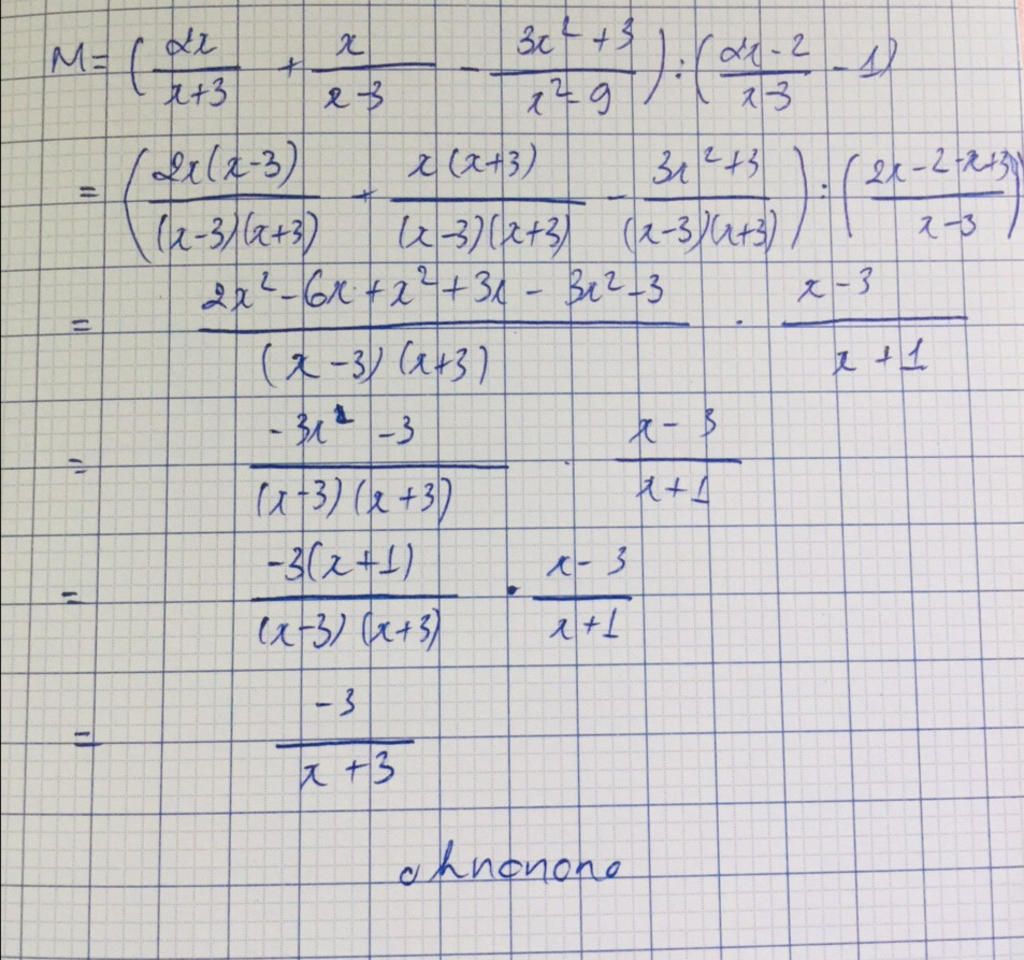 M = (2x/(x+3) + x/(x-3) - (3x² + 3)/(x² - 9)) : ((2x - 2)/(x-3) - 1)
= (2x(x-3)/((x-3)(x+3)) + x(x+3)/((x-3)(x+3)) - (3x² + 3)/((x-3)(x+3))) : ((2x - 2 - x + 3)/(x-3))
= (2x² - 6x + x² + 3x - 3x² - 3)/((x-3)(x+3)) . (x-3)/(x+1)
= (-3x - 3)/((x-3)(x+3)) . (x-3)/(x+1)
= -3(x+1)/((x-3)(x+3)) . (x-3)/(x+1)
= -3/(x+3)
ohnonono